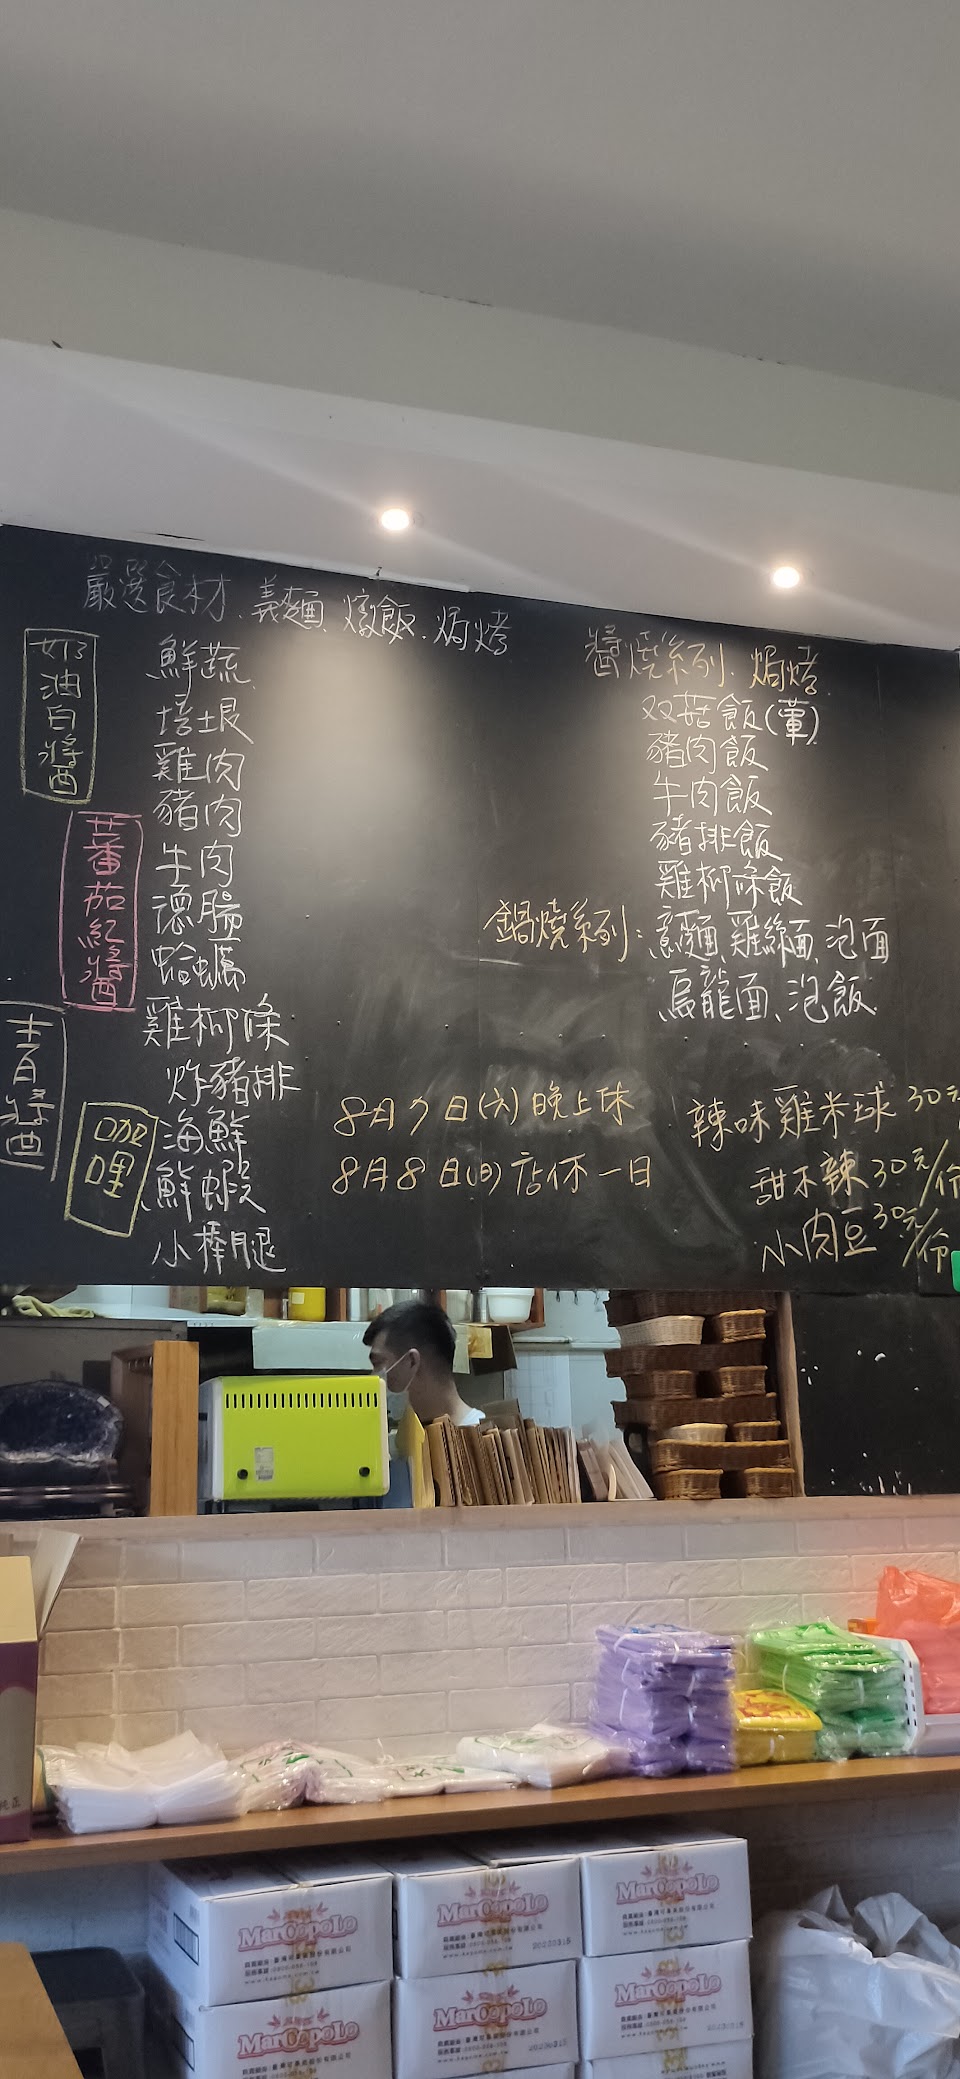 嚴選食材、義麵、燉飯、焗烤
奶油白醬
蕃茄紅醬
青醬
咖哩
鮮蔬
培根
雞肉
豬肉
牛肉
德腸
蛤蠣
雞柳條
炸豬排
海鮮
鮮蝦
小棒腿
醬燒系列、焗烤
双菇飯(葷)
豬肉飯
牛肉飯
豬排飯
雞柳條飯
鍋燒系列:意麵、雞絲面、泡面
烏龍面、泡飯
8月7日(六)晚上休
8月8日(日)店休一日
辣味雞米球30元
甜不辣30元/份
小肉豆30元/份
MarCopoLo
MarCopoLo
20220315
MarCopoLo
MarCopoLo
MarCopoLo
MarCopoLo